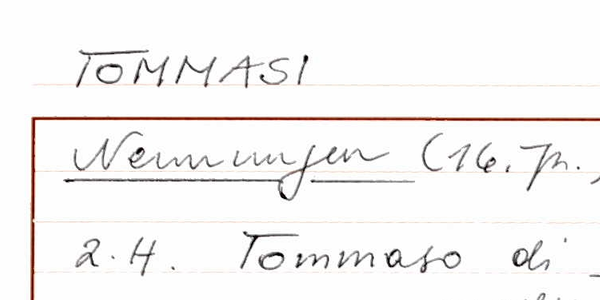 TOMMASI
Nennungen (16. Jh.)
2.H. Tommaso di